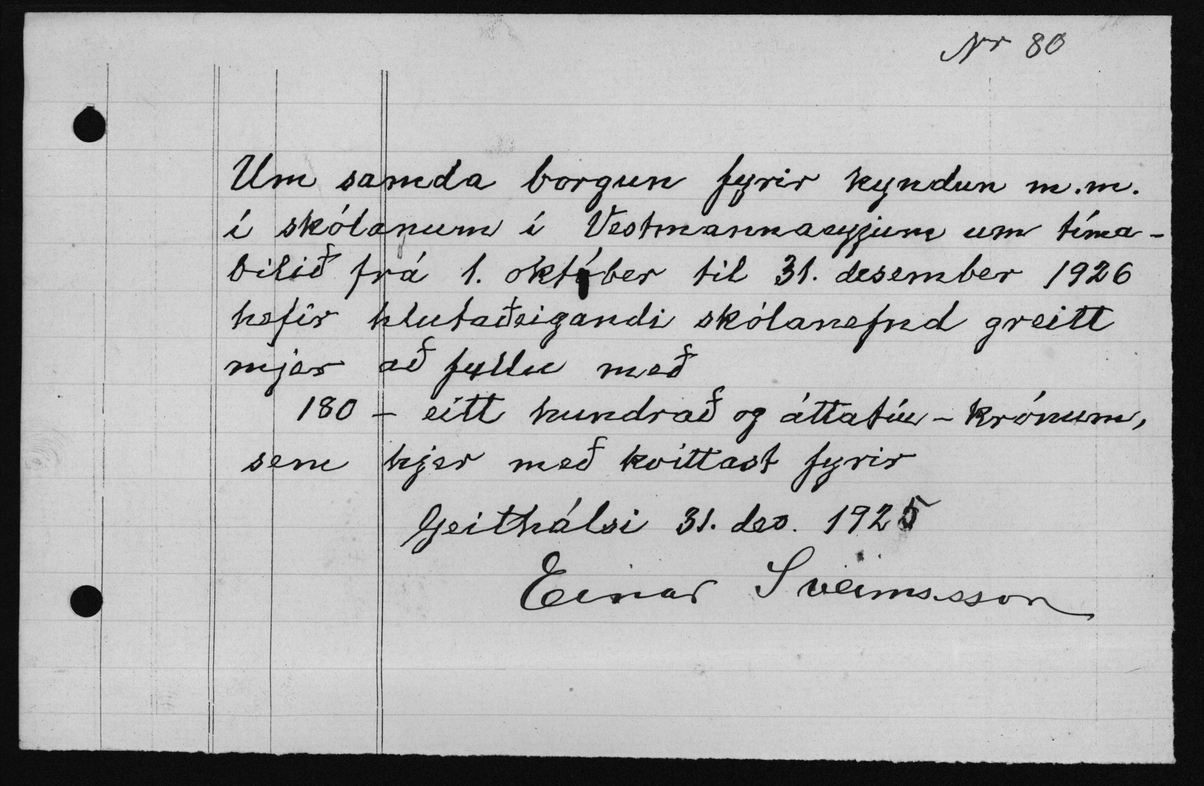 Nr 80
Um samda borgun fyrir kyndun m.m.
í skólanum í Vestmannaeyjum um tíma-
bilið frá 1. október til 31. desember 1926
hefir hlutaðeigandi skólanefnd greitt
mjer að fullu með
180 - eitt hundrað og áttatíu - krónum,
sem hjer með kvittast fyrir
Geithálsi 31. des. 1925
Einar Sveinsson